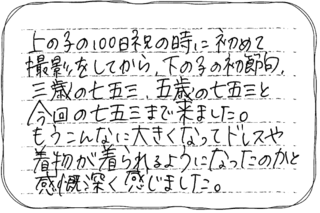 上の子の100日祝の時に初めて
撮影をしてから、下の子の初節句、
三歳の七五三、五歳の七五三と
今回の七五三まで来ました。
もうこんなに大きくなってドレスや
着物が着られるようになったのかと
感慨深く感じました。